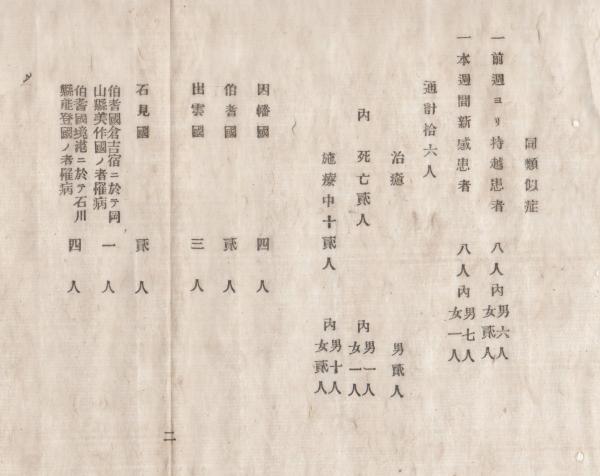 同類似症
一前週ヨリ持越患者 八人内男六人女貳人
一本週間新感患者 八人内男七人女一人
通計拾六人
治癒 男貳人
内 死亡貳人 内男一人女一人
施療中十貳人 内男十人女貳人
因幡國 四人
伯耆國 貳人
出雲國 三人
石見國 貳人
伯耆國倉吉宿ニ於テ岡
山縣美作國ノ者罹病 一人
伯耆國境港ニ於テ石川
縣能登國ノ者罹病 四人
二